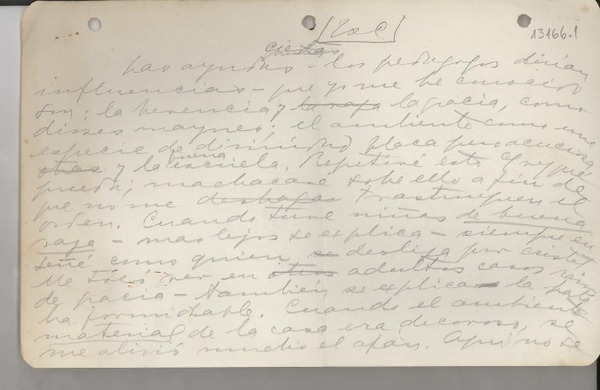 13166.1
Las ayudas - los pedagogos dirían
influencias - que yo me he conocido
son: la herencia y la raza la gracia, como
dioses mayores; el ambiente como una
especie de divinidad placa pero acuciosa
y la buena escuela. Repetiré esto
pueda, machacaré sobre ello a fin de
que no me deshagan trastruequen el
orden. Cuando tuve niñas de buena
raza - mas lejos se explica - siempre en
señé como quien se desliza por
Me tocó ver en otros adultos casos
de gracia - también se explica la
ha formidable. Cuando el ambiente
material de la casa era decoroso, se
me alivió mucho el afán. Aquí no se